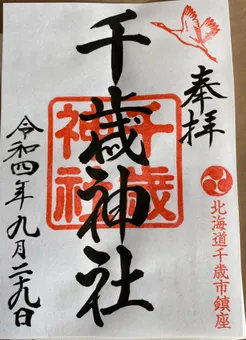 奉拝
北海道千歳市鎮座
千歳神社
千歳神社
令和四年九月二十九日